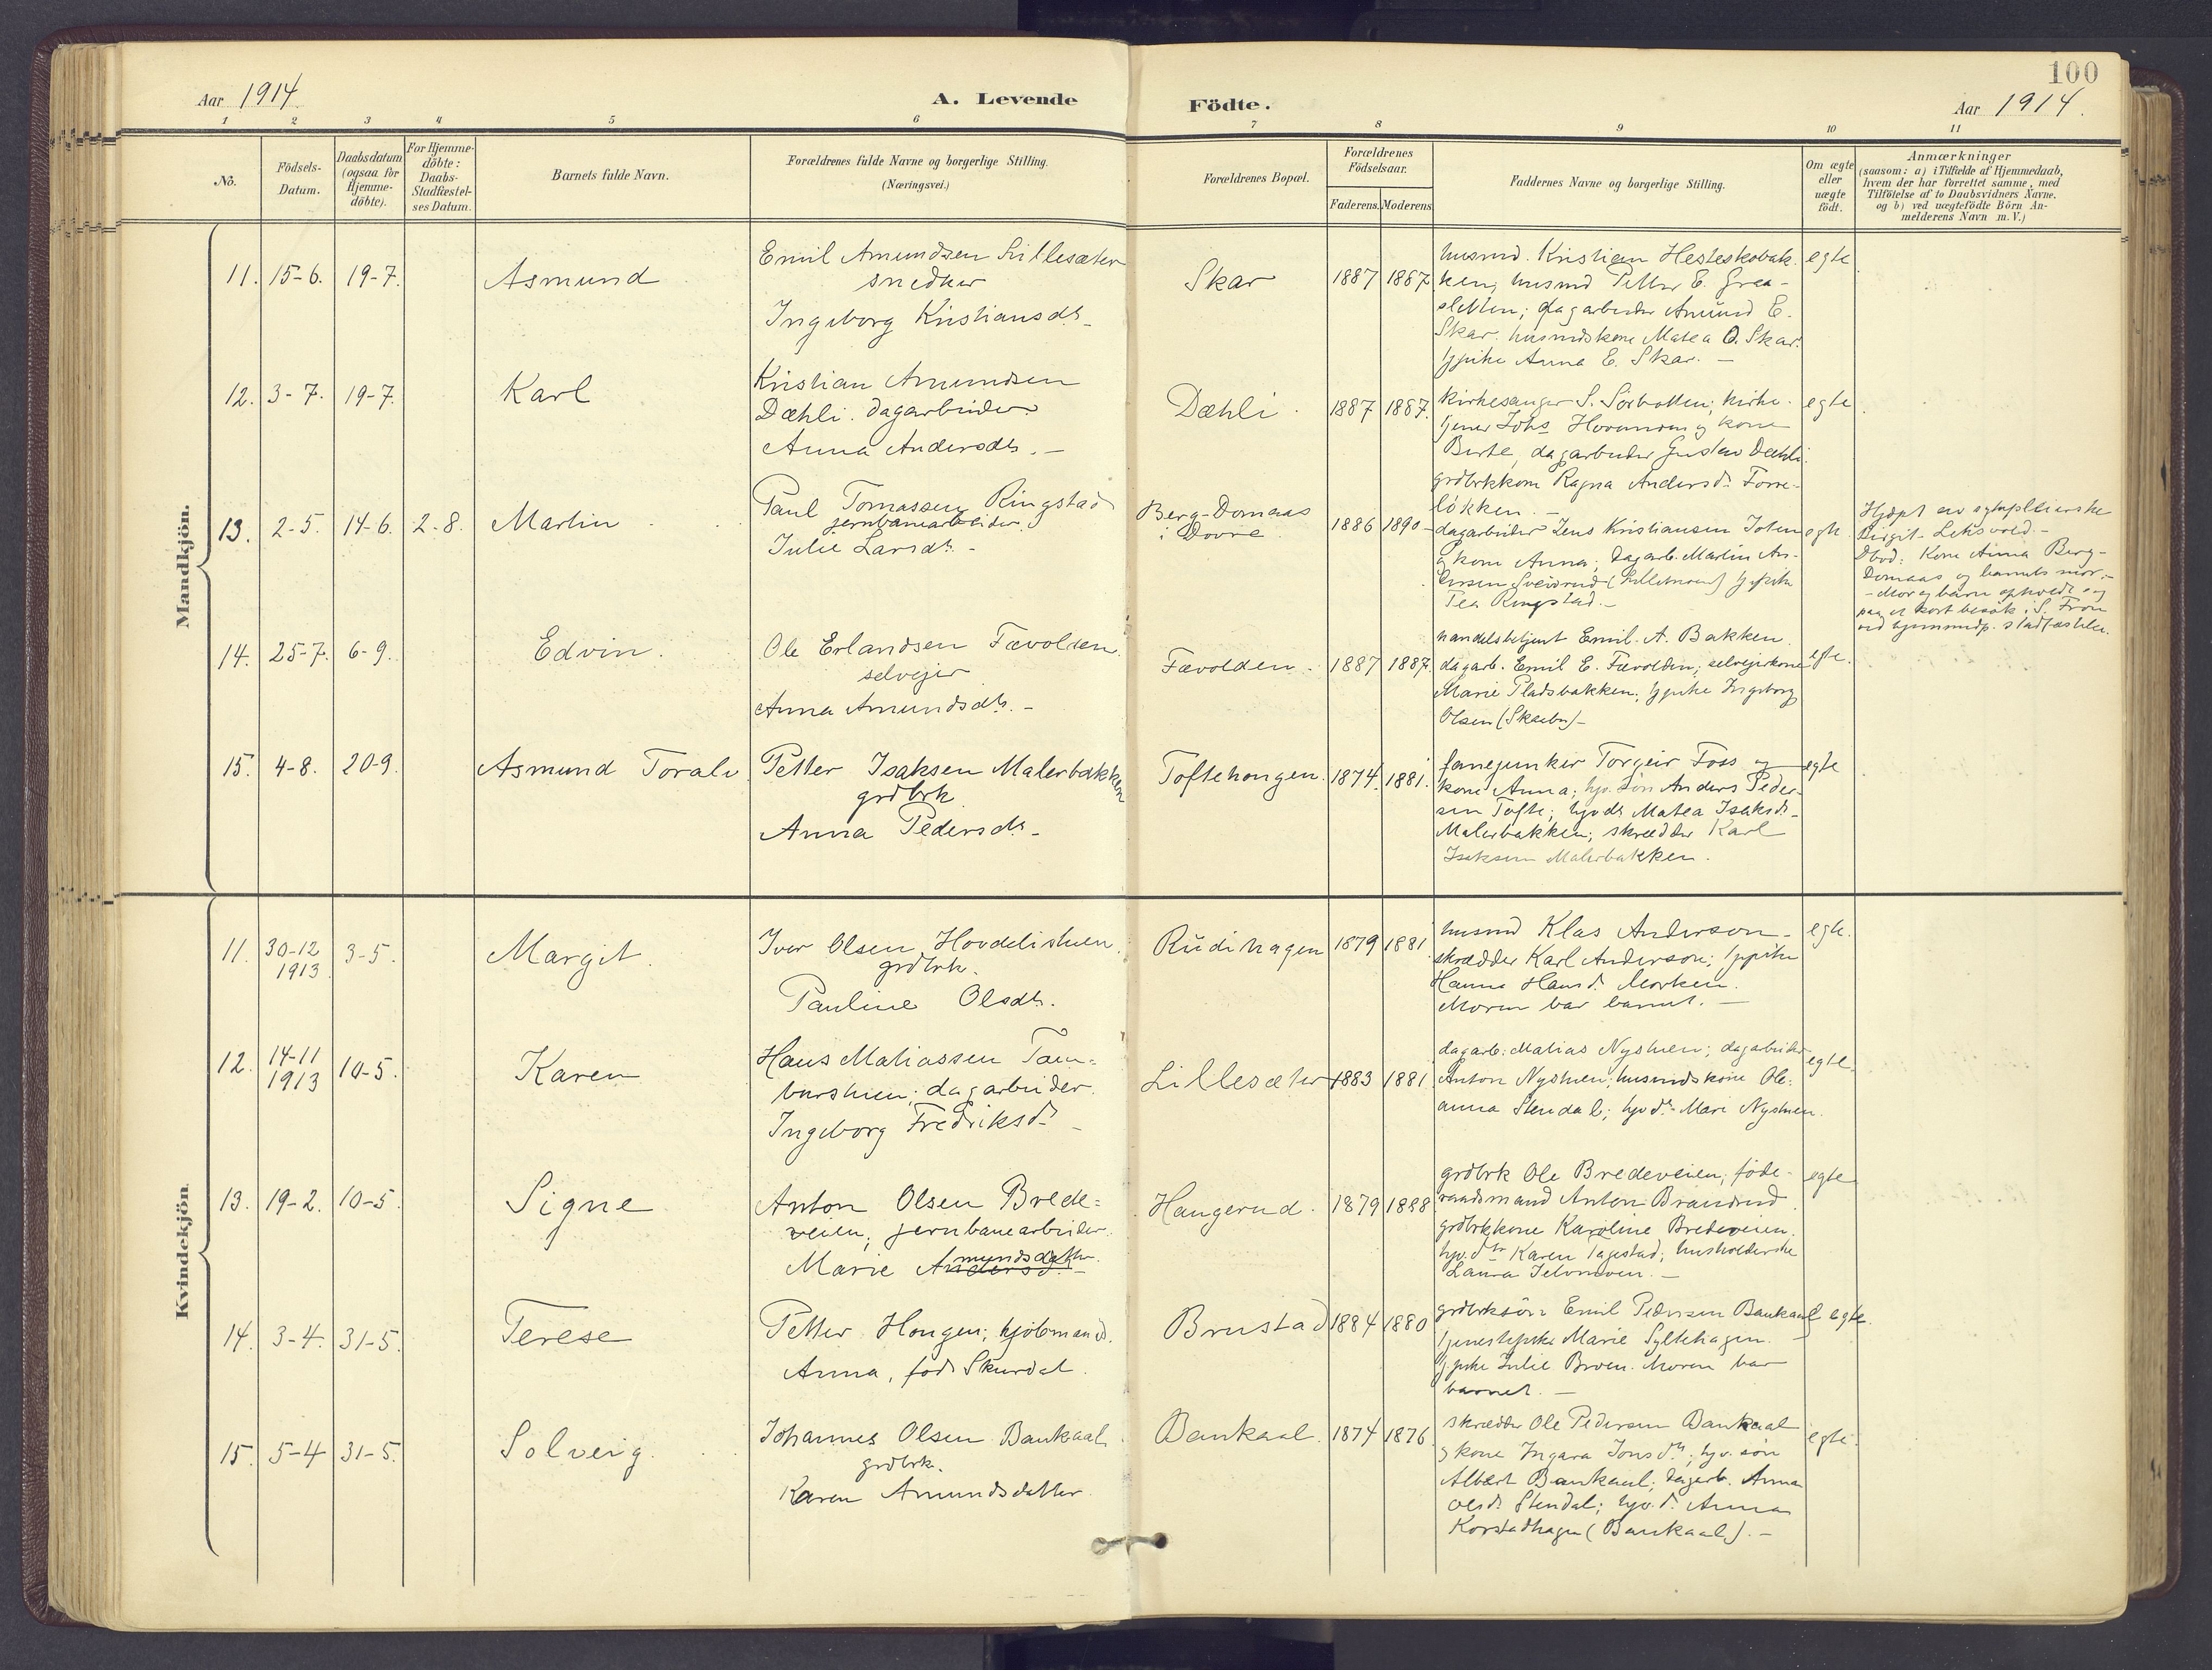 100
Aar 1914.
A. Levende
Födte.
Aar 1914.
1 2 3 4 5 6 7 8 9 10 11
No.
Födsels-
Datum.
Daabsdatum
(ogsaa for
Hjemme-
döbte).
For Hjemme-
döbte:
Daabs-
Stadfæstel-
ses Datum.
Barnets fulde Navn.
Forældrenes fulde Navne og borgerlige Stilling.
(Næringsvei.)
Forældrenes Bopæl.
Forældrenes
Födselsaar.
Faderens.
Moderens.
Faddernes Navne og borgerlige Stilling.
Om ægte
eller
uægte
födt.
Anmærkninger
(saasom: a) i Tilfælde af Hjemmedaab,
hvem der har forrettet samme, med
Tilföielse af to Daabsvidners Navne.
og b) ved uægtefödte Börn An-
melderens Navn m. V.)
Mandkjön.
11. 15-6. 19-7. Asmund
Emil Amundsen Lillesæter
snedker
Ingeborg Kristiansdtr.
Skar 1887 1887
husmd. Kristian Hesteskobak-
ken; husmd Petter E. Graa-
sletten; dagarbeider Amund E.
Skar. husmdskone Matea O. Skar.
pike Anna E. Skar. -
egte
12. 3-7. 19-7. Karl
Kristian Amundsen
Dæhli. dagarbeider
Anna Andersdtr. -
Dæhli. 1887 1887.
kirkesanger S. Sorbotten; kirke-
tjener Johs og kone
Berte, dagarbeider Gustav Dæhli.
grdbrkkone Ragna Andersd. Forre-
lökken. -
egte
13. 2-5. 14-6. 2-8. Martin
Paul Tomassen Ringstad
jernbanearbeider.
Julie Larsdtr. -
Berg-Domaas
i Dovre. 1886 1890
dagarbeider Jens Kristiansen Joten
og kone Anna; dagarb. Martin An-
dersen
Tea Ringstad. -
egte
Hjdpt av sykepleierske
Birgit
Dbvd: Kone Anna Berg-
Domaas og barnets mor. -
- Mor og barn
paa et kort besök i S. Fron
14. 25-7. 6-9. Edvin.
Ole Erlandsen Fævolden.
selveier
Anna Amundsdtr. -
Fævolden. 1887 1887.
handelsbetjent Emil A. Bakken.
dagarb. Emil E. Fævolden; selveierkone
Marie Pladsbakken; pike Ingeborg
Olsen
egte.
15. 4-8. 20-9. Asmund Toralv
Petter Isaksen Malerbakken
grdbrk
Anna Pedersdtr. -
Toftehougen. 1874. 1881.
fanejunker Torgeir Foss og
kone Anna; hjv. sön Anders Peder-
sen Tofte; hjv dtr Matea Isaksdtr -
Malerbakken; skrædder Karl
Isaksen Malerbakken.
egte
Kvindekjön
11. 30-12
1913. 3-5. Margit.
Iver Olsen Hovdelistuen.
grdbrk.
Pauline Olsdtr.
Rudihagen 1879 1881
husmd Klas Anderson -
skrædder Karl Anderson; pike
Hanna Hansd. Morken.
Moren bar barnet. -
egte.
12. 14-11
1913 10-5. Karen
Hans Matiassen Tam-
burstuen; dagarbeider.
Ingeborg Fredriksd. -
Lillesæter 1883 1881
dagarb. Matias Nystuen; dagarbeider
Anton Nystuen; husmdskone Ole-
anna Stendal; hjv dtr Mari Nystuen.
egte.
13. 19-2. 10-5. Signe
Anton Olsen Brede-
veien; jernbanearbeider.
Marie Amundsdatter.
Haugerud. 1879 1888
grdbrk Ole Bredeveien; föde-
raadsmand Anton Brandrud.
grdbrkkone Karoline Bredeveien.
hjv. dtr Karen husholderske
Laura
egte
14. 3-4. 31-5. Terese
Petter Hougen; kjöbmand.
Anna, född Skurdal.
Brustad 1884 1880
grdbrksön Emil Pedersen Baukaal
tjenestepike Marie Syltehagen.
pike Julie Broen. Moren bar
barnet. -
egte.
15. 5-4 31-5. Solveig.
Johannes Olsen Baukaal.
grdbrk.
Karen Amundsdatter.
Baukaal. 1874 1876
skrædder Ole Pedersen Baukaal
og kone Ingara Jonsdtr; hjv. sön
Albert Baukaal; dagarb. Anna
Olsd. Stendal; hjv. d. Anna
Korstadhagen (Baukaal). -
egte.